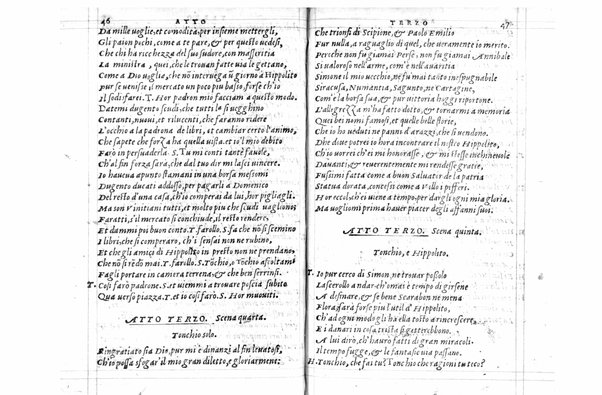 46 ATTO
Da mille voglie, et comodità per insieme mettergli,
Gli paion pochi, come a te pare, & per questo vedesi,
Che chi ha ricchezza del suo sudore, con masseritia
La ministra, quei, che le trovan fatte via le getano,
Come a Dio voglia, che nõ intervega ũ giorno a Hippolito
pur se venisse il mercato un poco piu basso, forse ch'io
Il sodisfarei. T. Hor padron mio facciam a questo modo.
Datemi dugento scudi, che tutti le sugghino
Contanti, nuovi, et rilucenti, che faranno ridere
L'occhio a la padrona de libri, et cambiar certo l'animo,
Che sapete che forza ha quella vista. et io'l mio debito
Farò in persuaderla. S. Tu mi conti tante favole,
Ch'al fin forza sarà, che dal tuo dir mi lasci vincere.
Io haueua apunto stamani in una borsa messomi
Dugento ducati addosso, per pagarli a Domenico
Del resto d'una casa, ch'io comperai da lui, hor pigliagli.
Ma son Vinitiani tutti, et molto piu che scudi vagliono
Faratti, s'il mercato si conchiude, il resto rendere.
Et dammi poi buon conto. T. farollo. S. fa che nõ si scemino
I libri, che si comperaro, ch'i sensai non ne rubino,
Et che gli amici di Hippolito in presto non ne prendano.
Che nõ si rẽdõ mai. T. Farollo. S. Tõchio, o Tõchio ascoltami
Fagli portare in camera terrena, & che ben serrinsi.
T. Così farò padrone. S. et uiemmi a trouare poscia subito
Qua verso piazza. T. et io così farò. S. Hor muouiti.
ATTO TERZO. Scena quarta.
Tonchio solo.
Ringratiato sia Dio, pur mi è dinanzi al fin leuatosi,
Ch'io possa sfogar'il mio gran diletto, e gloriarmene
TERZO 47
Che trionfi di Scipione, & Paolo Emilio
Fur nulla, a raguaglio di quel, che ueramente io merito.
Perche non fu giamai Pompeo, non fu giamai Annibale
Si ualoroso nell'arme, com'è nell'auaritia
Simone il mio uecchio, ne fu mai tanto inespugnabile
Siracusa, Numantia, Sagunto, ne Cartagine,
Com'è la borsa sua, & pur uittoria hoggi riportone.
L'allegrezza m'ha fatto dotto, & tornarmi a memoria
Quei bei nomi famosi, et quelle belle storie,
Che io ho ueduto ne panni d'arazzi, che si uendono.
Dhe dīue potrei io hora incontrare il nostro Hippolito,
Ch'io uorrei ch'ei mi honorasse, & mi stesse inchineuole
Dauanti, & reuerentemente mi rendesse gratie,
Fussimi fatta come a buon Saluator de la patria
Statua dorata, con tesi come a Vello i pifferi.
Hor eccol. eh ei uiene a tempo. per dargli ogni mia gloria.
Ma uogliomi prima hauer piater degli affanni suoi.
ATTO TERZO. Scena quinta.
Tonchio, e Hippolito.
T. Io pur cerco di Simon ne trouar possolo
Lascerollo andar. ch'omai è tempo di girsene
A desinare, & se bene Scarabon ne mena
Flora, assarà forse piu l'util d'Hippolito,
Ch'ad ogni modo gli ha ella tosto a rincrescere,
E i danari in cosa trista si gatterebbono.
A lui dirò, ch'hauro fatti di gran miracoli.
Il tempo fugge, & le fantasie via passano.
H. Tonchio, che fai tu? Tonchio che ragioni tu teco?